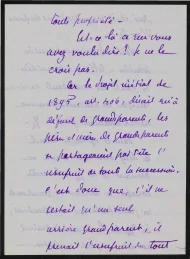 toute propriété —
Est-ce là ce que vous
avez voulu dire ? Je ne le
crois pas.
Car le projet initial de
1895, art. 406, disait qu'à
défaut de grandsparents, les
père et mère de grandsparents
se partageaient par tête l'
usufruit de toute la succession.
C'est donc que, s'il ne
restait qu'un seul
arrière grandparent, il
prenait l'usufruit du tout